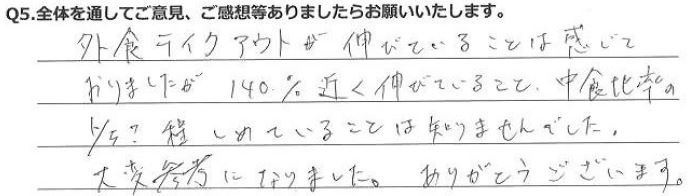 Q5.全体を通してご意見、ご感想等ありましたらお願いいたします。
外食テイクアウトが伸びていることは感じて
おりましたが 140%近く伸びていること、中食比率の
1/5?程しめていることは知りませんでした。
大変参考になりました。ありがとうございます。